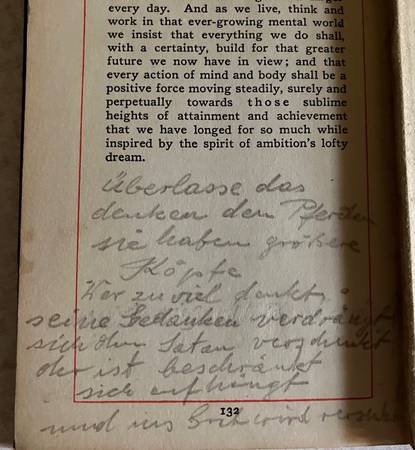 every day. And as we live, think and
work in that ever-growing mental world
we insist that everything we do shall,
with a certainty, build for that greater
future we now have in view; and that
every action of mind and body shall be a
positive force moving steadily, surely and
perpetually towards those sublime
heights of attainment and achievement
that we have longed for so much while
inspired by the spirit of ambition's lofty
dream.
Überlasse das
denken den Pferden
sie haben größere
Köpfe
Wer zu viel denkt,
seine Gedanken verdrängt
sich dem Satan
der ist beschränkt
sich aufhängt
132
und ins wird